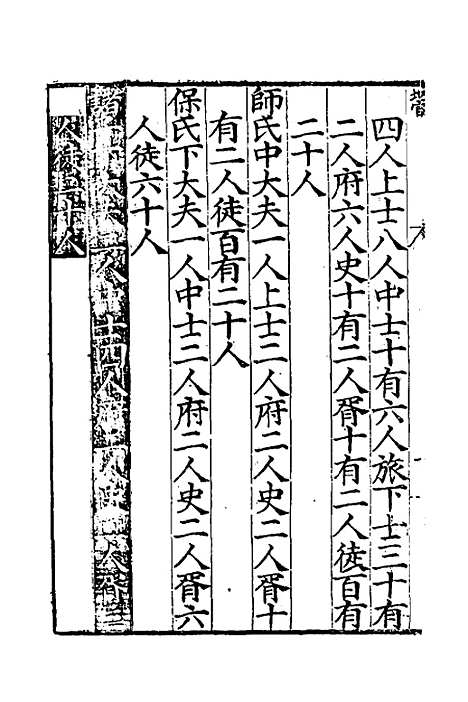 四人上士八人中士十有六人旅下士三十有
二人府六人史十有二人胥十有二人徒百有
二十人
師氏中大夫一人上士二人府二人史二人胥十
有二人徒百有二十人
保氏下大夫一人中士二人府二人史二人胥六
人徒六十人
人中士四人府二人史
人徒二十人